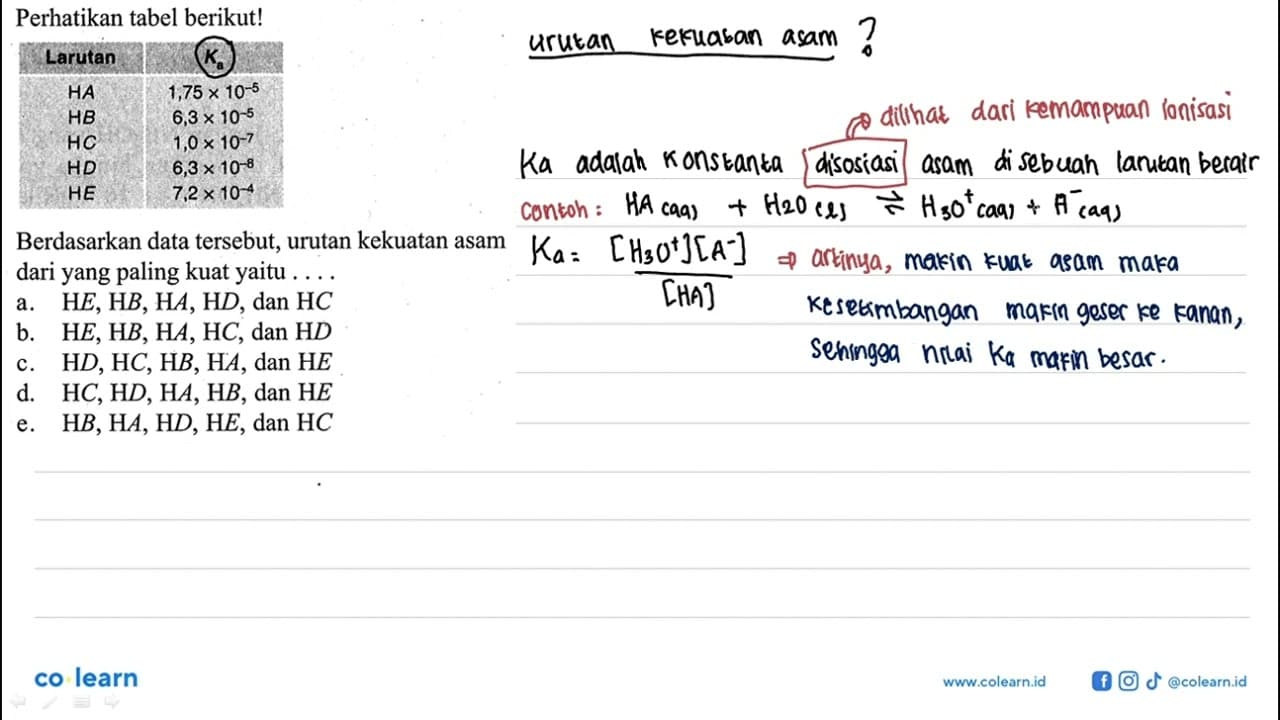 Perhatikan tabel berikut!
Larutan Ka
HA 1,75 × 10⁻⁵
HB 6,3 × 10⁻⁵
HC 1,0 × 10⁻⁷
HD 6,3 × 10⁻⁸
HE 7,2 × 10⁻⁴
Berdasarkan data tersebut, urutan kekuatan asam
dari yang paling kuat yaitu . . . .
a. HE, HB, HA, HD, dan HC
b. HE, HB, HA, HC, dan HD
c. HD, HC, HB, HA, dan HE
d. HC, HD, HA, HB, dan HE
e. HB, HA, HD, HE, dan HC
urutan kekuatan asam ?
dilihat dari kemampuan ionisasi
Ka adalah konstanta disosiasi asam di sebuah larutan berair
contoh : HA (aq) + H2O (l) ⇌ H3O⁺ (aq) + A⁻ (aq)
Ka = [H3O⁺][A⁻] ⇒ artinya, makin kuat asam maka
[HA]
kesetimbangan makin geser ke kanan,
sehingga nilai Ka makin besar.
co learn
www.colearn.id @colearn.id